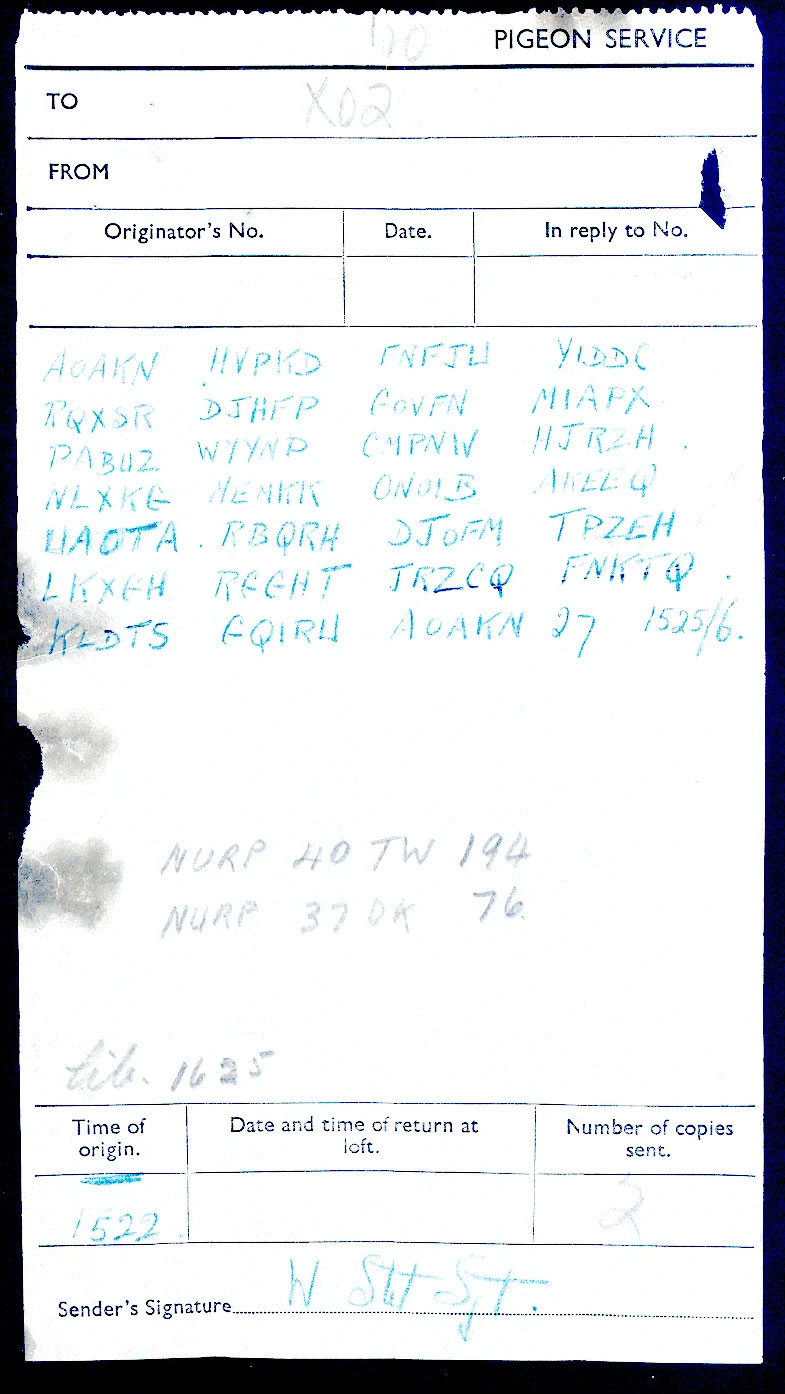 PIGEON SERVICE
TO X02
FROM
Originator's No. Date. In reply to No.
AOAKN HVPKD FNFJU YIDDC
RQXSR DJHFP GOVFN MIAPX
PABUZ WYYNP CMPNW HJRZH .
NLXKG MEMKK ONOIB AKEEQ
UAOTA . RBQRH DJOFM TPZEH
LKXGH RGGHT JRZCQ FNKTQ .
KLDTS GQIRU AOAKN 27 1525/6.
NURP 40 TW 194
NURP 37 DK 76
lib. 1625
Time of origin. Date and time of return at loft. Number of copies sent.
1522 2
Sender's Signature W Stot Sjt.